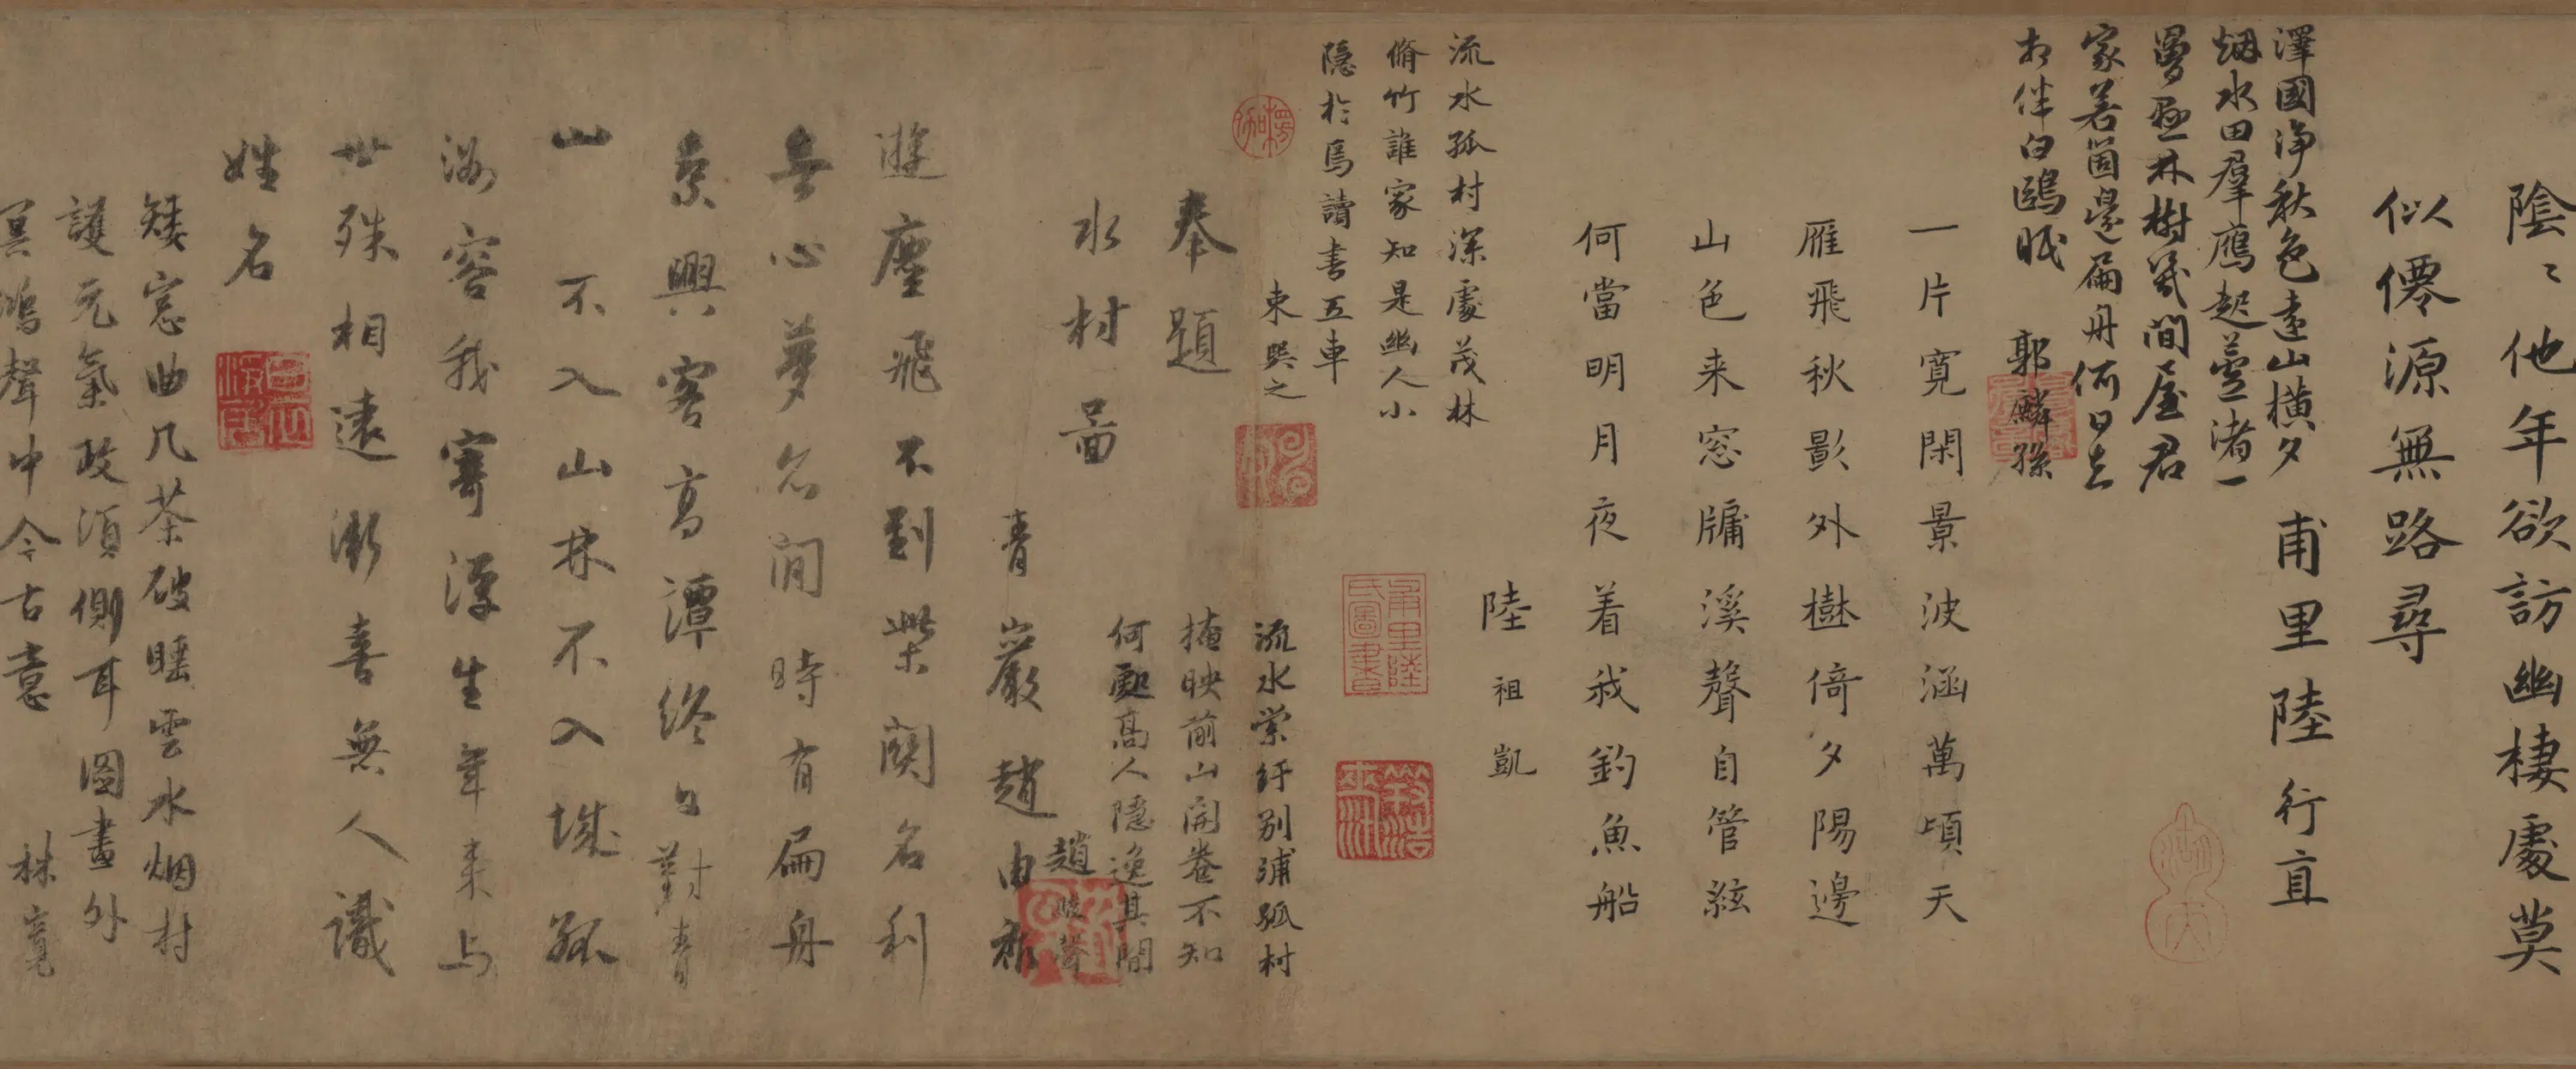 陰〻他年欲訪幽棲處莫
似僊源無路尋
甫里陸行直
澤國淨秋色遠山橫夕
烟水田羣鴈起蘆渚一
鷗延林樹幾間屋君
家若箇邊扁舟何日去
相伴白鷗眠 郭麟孫
一片寬閑景波涵萬頃天
雁飛秋影外樹倚夕陽邊
山色来窓牖溪聲自管絃
何當明月夜着我釣魚船
陸祖凱
流水孤村深處茂林
脩竹誰家知是幽人小
隱於焉讀書五車
束巽之
甫里陸氏圖書
流水縈紆别浦孤村
掩映前山開卷不知
何處高人隱逸其間
趙
奉題
水村啚
青巖趙由
遊塵飛不到柴關名利
無心夢亦閒時有扁舟
乘興客高譚終日對青
山不入山林不入城孤
窓容我寄浮生年来与
世殊相遠漸喜無人識
姓名
矮窓曲几茶破睡雲水烟村
護元氣政須側耳圖畫外
冥鴻聲中今古意 林寬